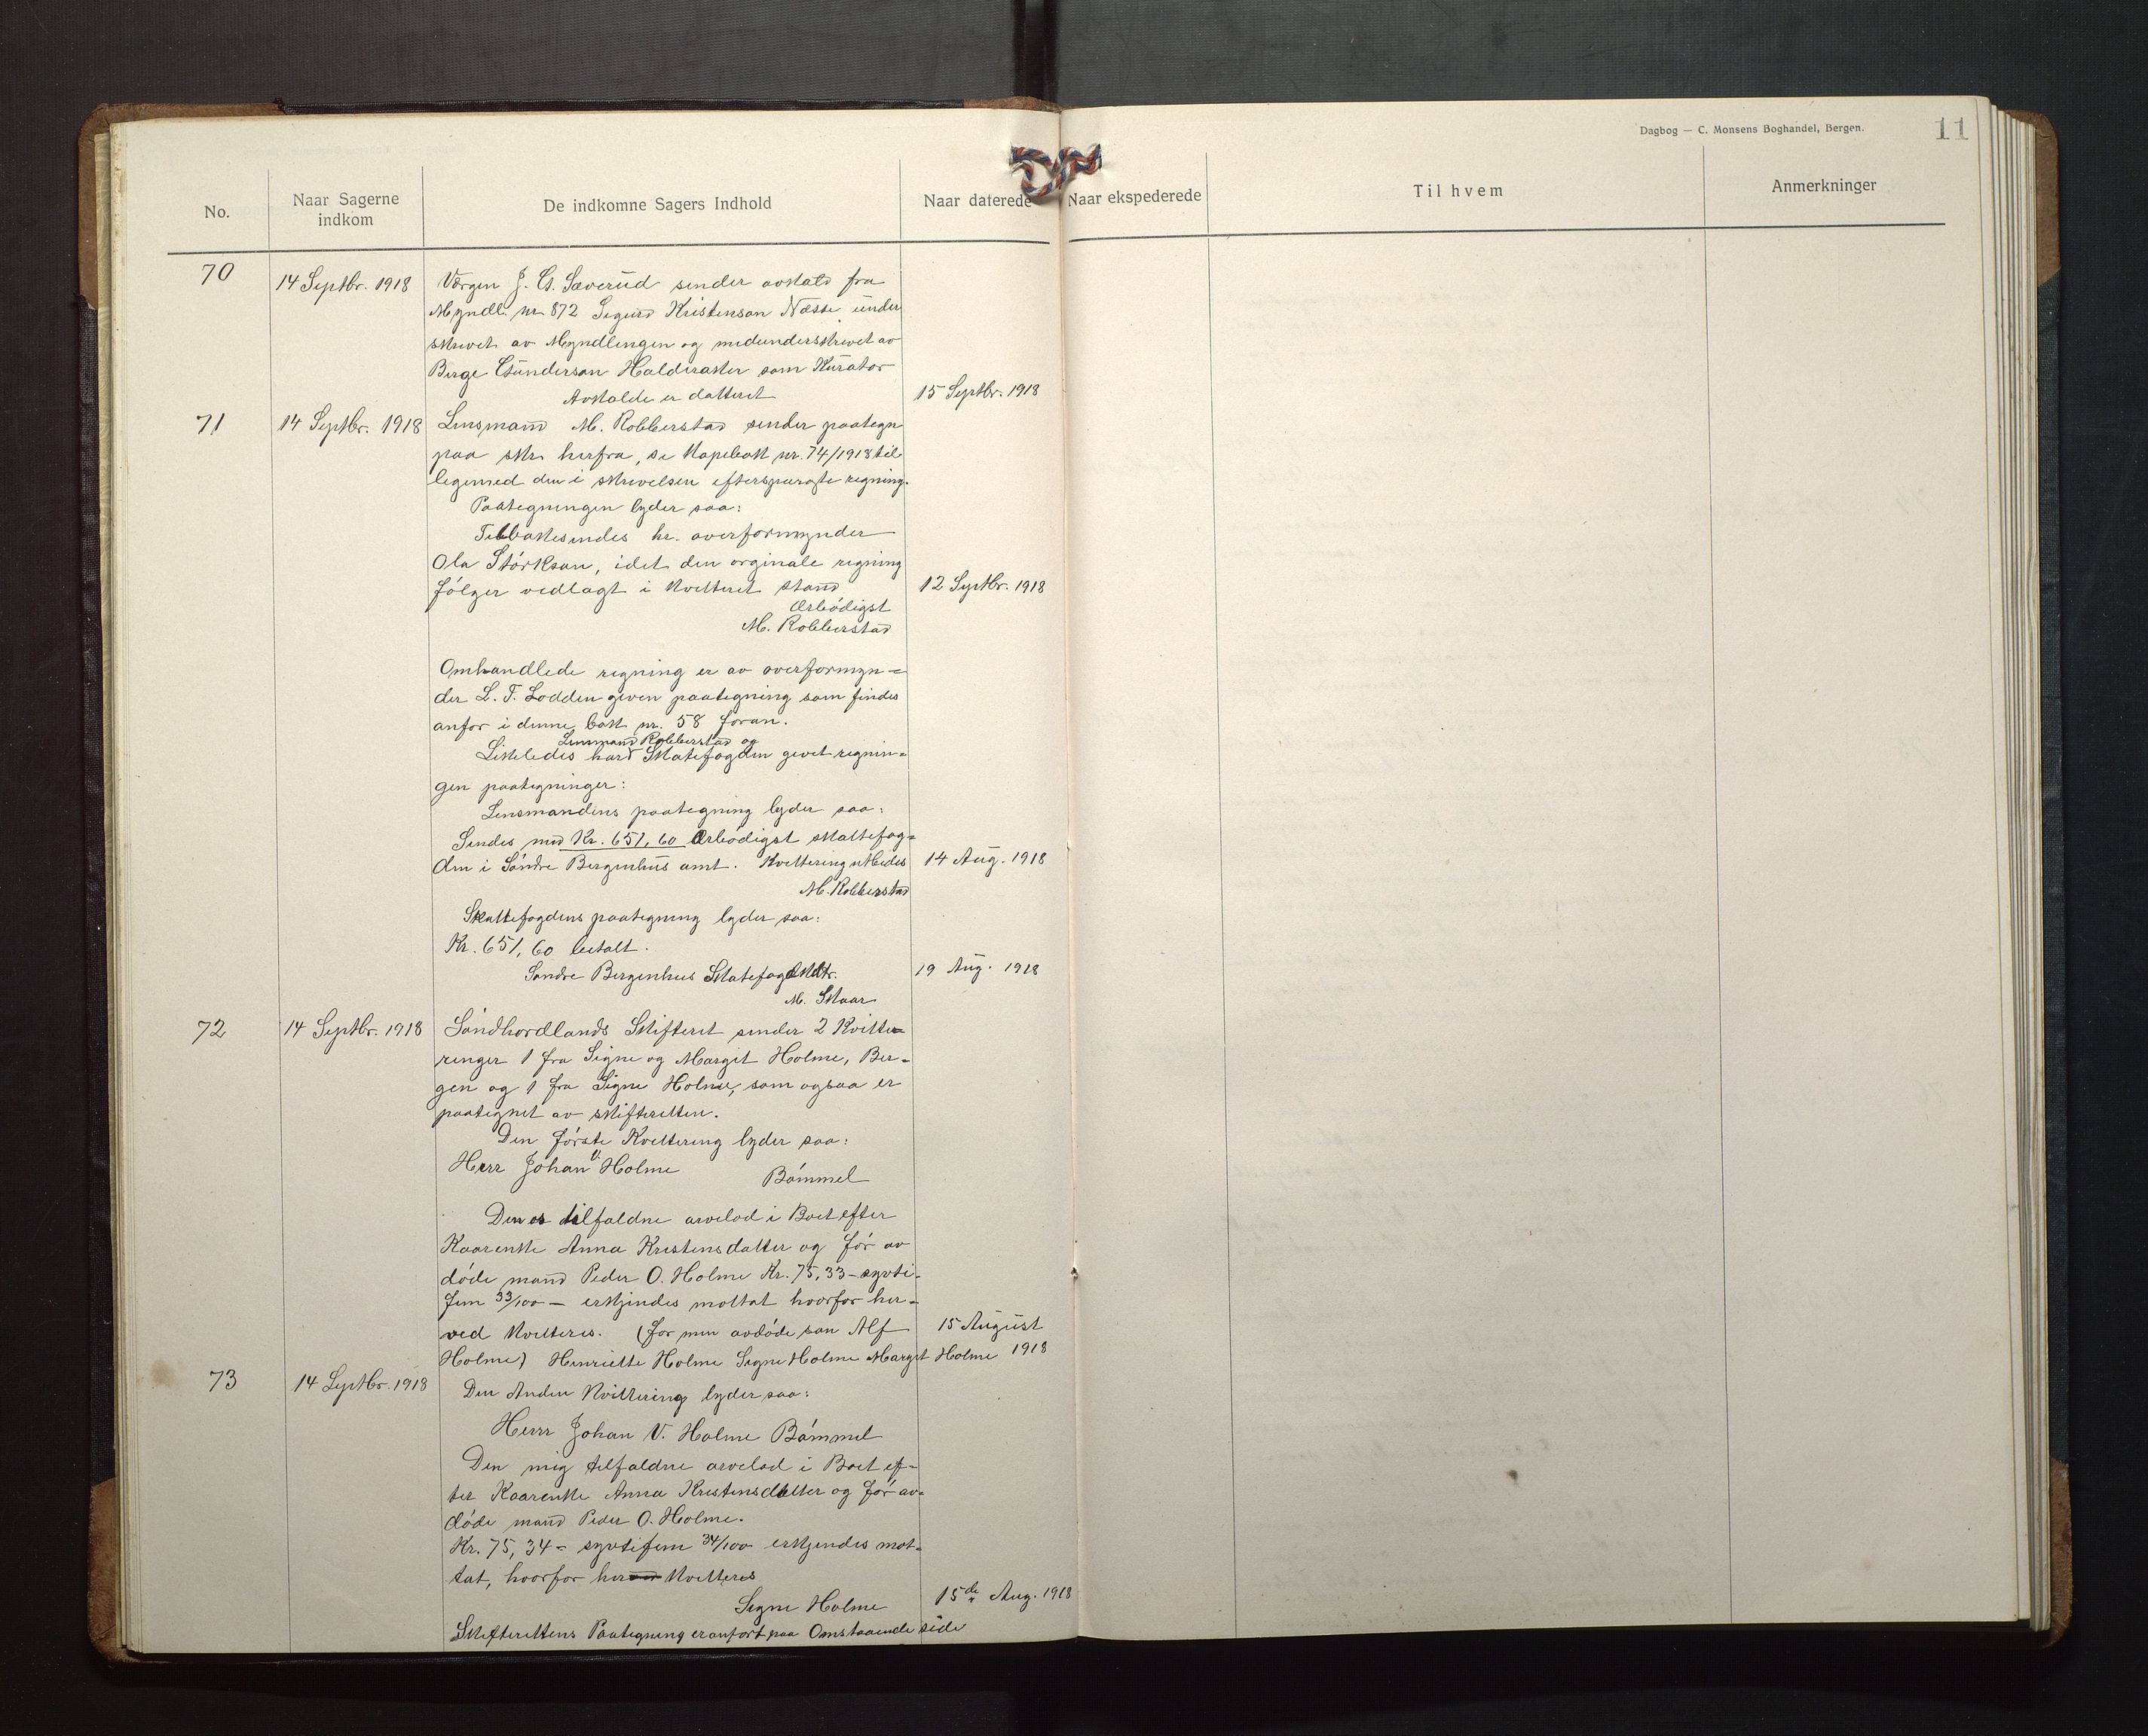 Dagbog — C. Monsens Boghandel, Bergen.
11
No.
Naar Sagerne indkom
De indkomne Sagers Indhold
Naar daterede
Naar ekspederede
Til hvem
Anmerkninger
70
14 Septbr. 1918
Vergen J. G. Sæverud sender avkald fra
Myndl. nr 872 Sigurd Kristenson Næsse under
skrevet av Myndlingen og medunderskrevet av
Berge Gunderson Halderaker som Kurator
Avkalde er datteret
15 Septbr. 1918
71
14 Septbr. 1918
Lensmand M. Robberstad sender paategn
paa skr. herfra, se Kopibok nr. 74/1918 til
legemed den i skrivelsen efterspurgte regning.
Paategningen lyder saa:
Tilbakesendes hr. overformynder
Ola Størkson, idet den orginale regning
følger vedlagt i kvitteret stand
12 Septbr. 1918
Ærbødigst
M. Robberstad
Omhandlede regning er av overformyn=
der L. T. Lodden given paategning som findes
anfør i denne bok nr. 58 foran.
Lensmand Robberstad og
Likeledes har Skatefogden gevet regnin=
gen paategninger:
Lensmandens paategning lyder saa:
Sendes med Kr. 651,60 Ærbødigst skattefog=
den i Søndre Bergenhus amt. Kvittering utbedes
14 Aug. 1918
M. Robberstad
Skattefogdens paategning lyder saa:
Kr. 651,60 betalt.
Søndre Bergenhus Skatefogdktr.
19 Aug. 1918
M. Skaar
72
14 Septbr. 1918
Søndhordlands Skifteret sender 2 Kvitte=
ringer 1 fra Signe og Margit Holme, Ber=
gen og 1 fra Signe Holme, som ogsaa er
paategnet av skifteretten.
Den første Kvittering lyder saa:
Herr Johan V. Holme
Bømmel
Den os tilfaldne arvelod i Boet efter
Kaarenke Anna Kristensdatter og før av
døde mand Peder O. Holme Kr. 75,33 – syvti-
fem 33/100 — erkjendes mottat hvorfor her=
ved kvitteres. (for min avdøde søn Alf
15 August
Holme) Henriette Holme Signe Holme Margit Holme 1918
73
14 Septbr. 1918
Den Anden Kvittering lyder saa:
Herr Johan V. Holme Bømmel
Den mig tilfaldne arvelod i Boet ef=
ter Kaarenke Anna Kristensdatter og før av=
døde mand Peder O. Holme.
Kr. 75,34 = syvtifem 34/100 erkjendes mot=
tat, hvorfor herved kvitteres
Signe Holme
15de Aug. 1918
Skifterettens Paategning er anført paa Omstaaende side